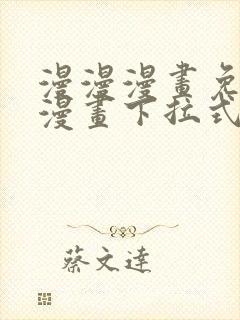 漫漫漫畫免
漫畫下拉式
蔡文達